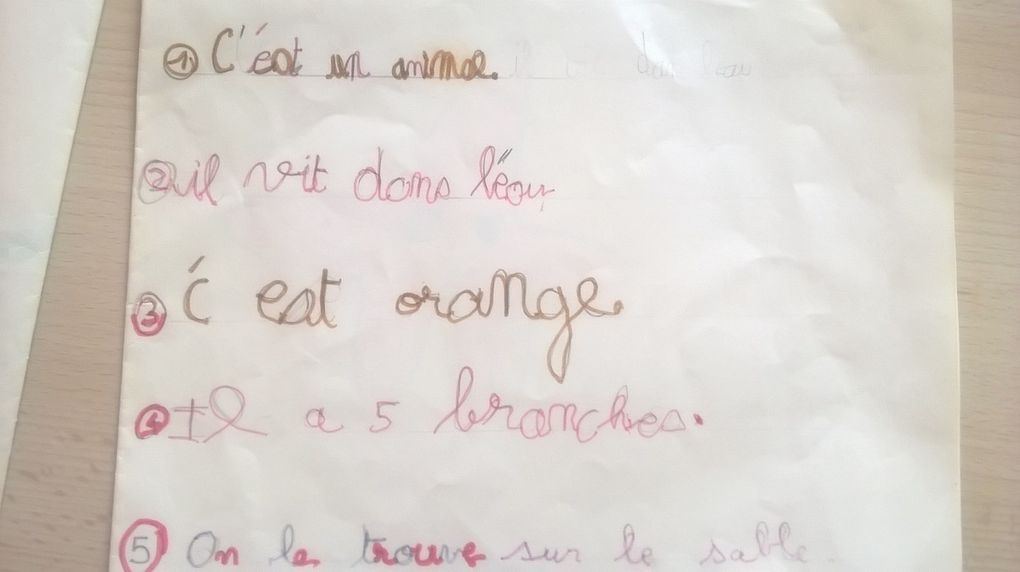 ① C'est un animal.
② il vit dans l'éau
③ C'est orange.
④ Il a 5 branches.
⑤ On le trouve sur le sable.